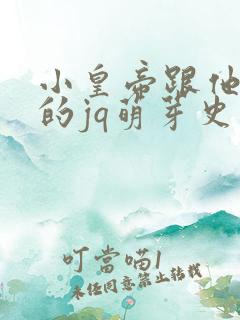 小皇帝跟他
的jq萌芽史
叮當喵1
未经同意禁止转载